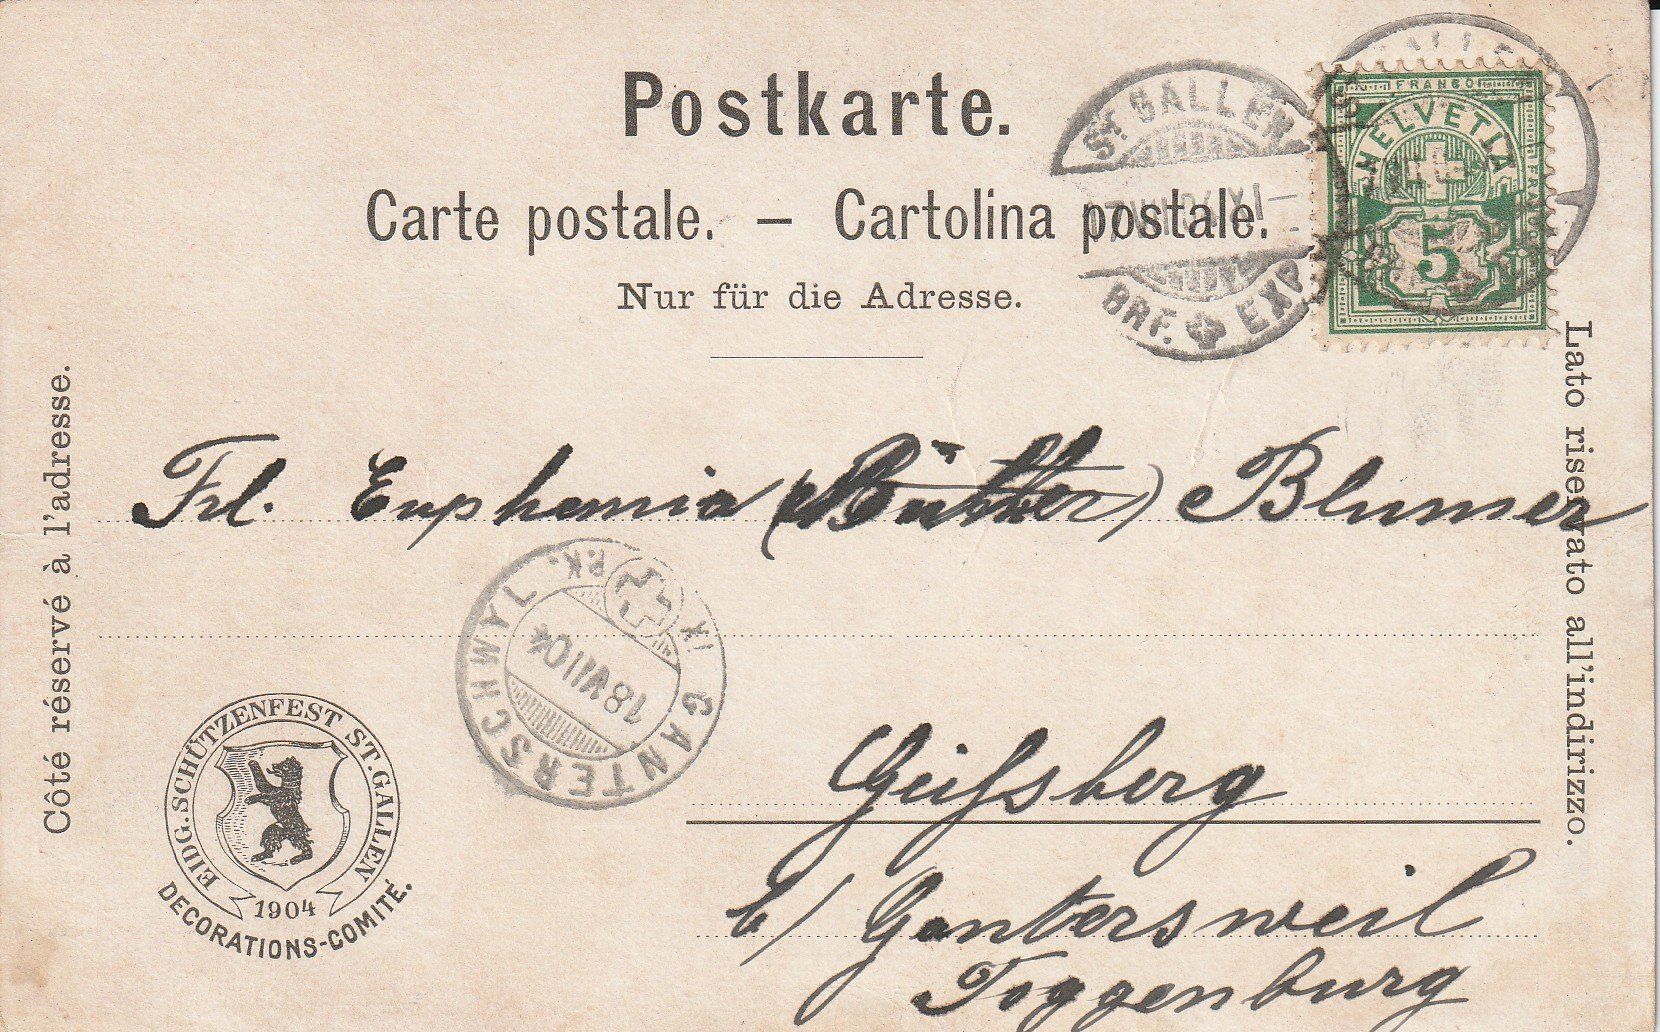 Postkarte.
Carte postale. – Cartolina postale.
Nur für die Adresse.
ST. GALLEN
BRF. EXP.
FRANCO
HELVETIA
FRANCO
5
Côté réservé à l'adresse.
Lato riservato all'indirizzo.
Frl. Euphemia (Bütler) Blumer
GANTERSCHWYL
18 VII 04
XI
Geißberg
b/ Gantersweil
Toggenburg
EIDG. SCHÜTZENFEST ST. GALLEN
1904
DECORATIONS-COMITÉ.